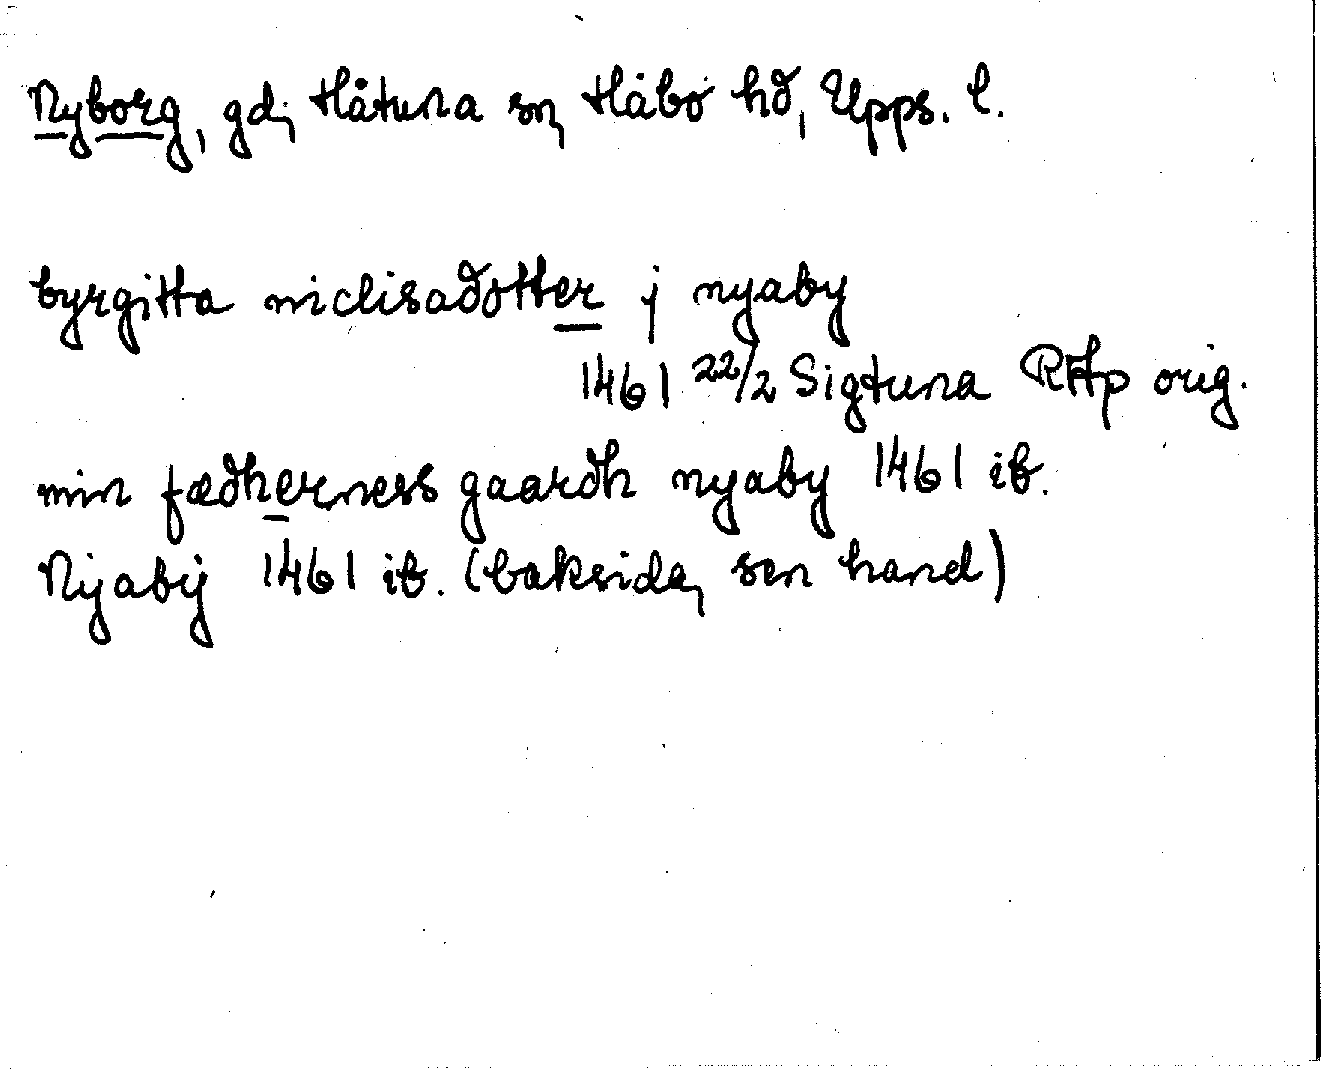 Nyborg, gd, Håtuna sn, Håbo hd, Upps. l.
byrgitta niclisadotter j nyaby
1461 22/2 Sigtuna RAp orig.
min fædherness gaardh nyaby 1461 ib.
Nÿabÿ 1461 ib. (baksida, sen hand)